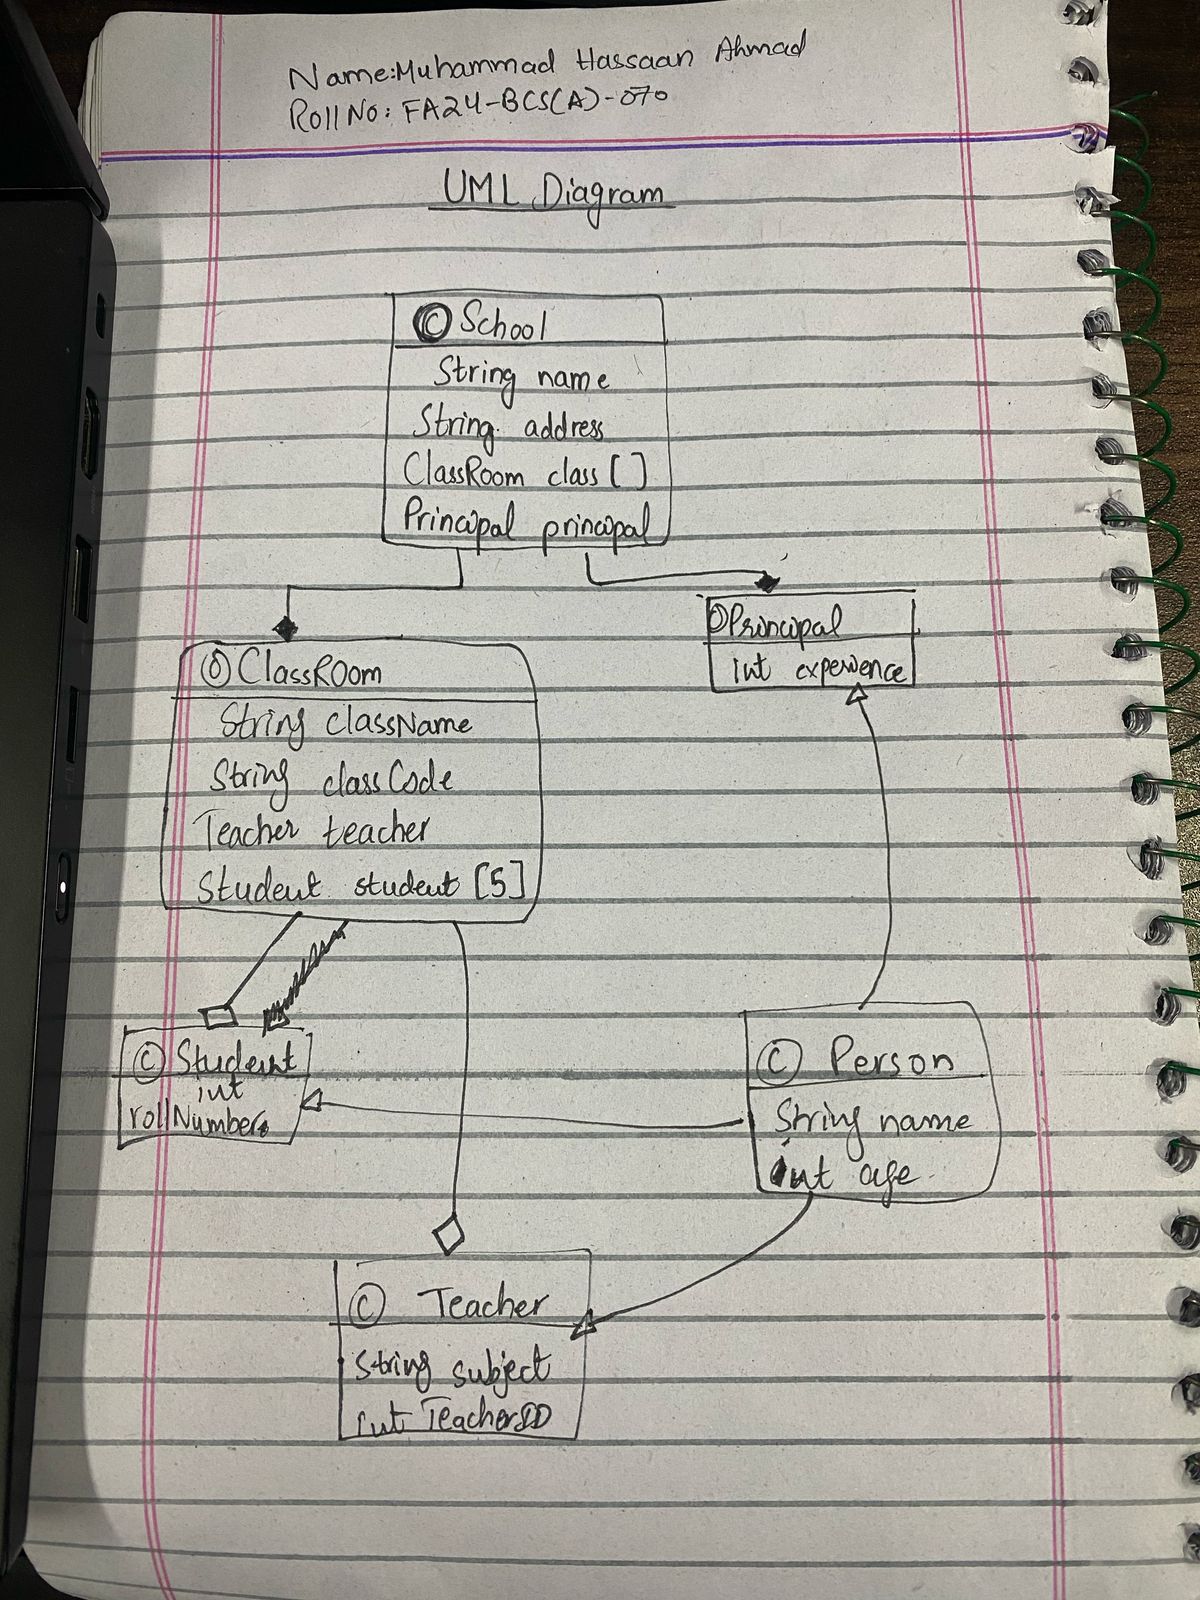 Name:Muhammad Hassaan Ahmad
Roll No: FA24-BCS(A)-070
UML Diagram
© School
String name
String address
ClassRoom class [ ]
Principal principal
Principal
int experience
ClassROom
String className
String classCode
Teacher teacher
Student student [5]
© Student
int
rollNumber
© Person
String name
int age
© Teacher
String subject
int TeacherID